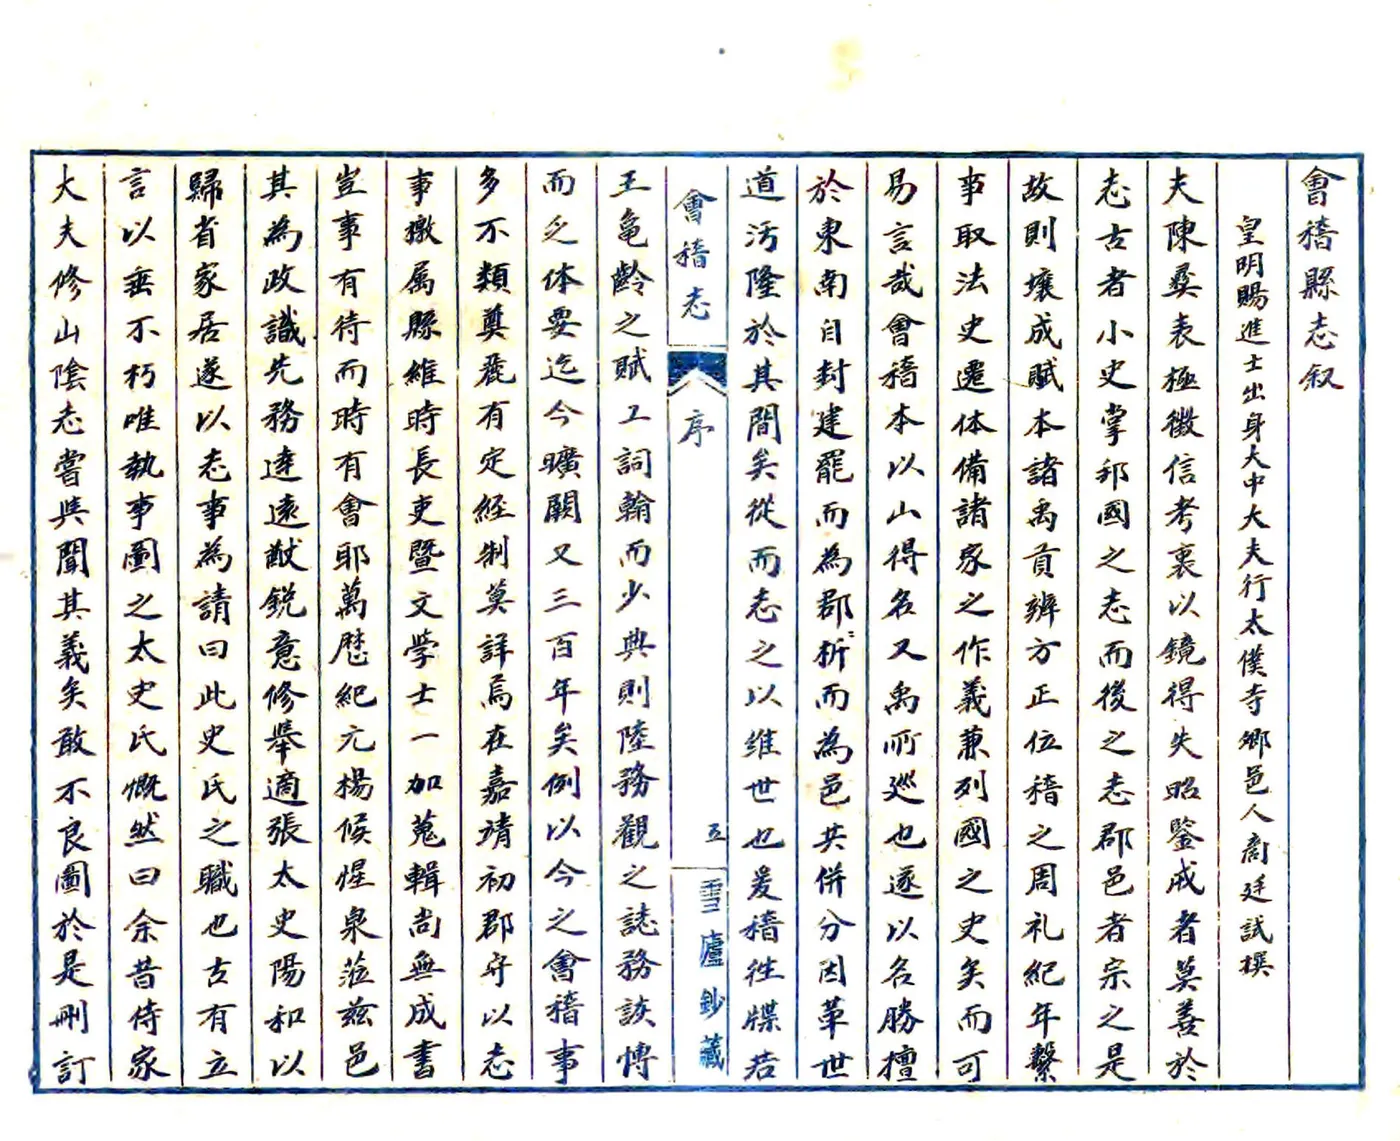 會稽縣志叙
皇明賜進士出身大中大夫行太僕寺卿邑人商廷試撰
夫陳彜表極徵信考裏以鏡得失昭鑒戒者莫善於
志古者小史掌邦國之志而後之志郡邑者宗之是
故則壤成賦本諸禹貢辨方正位稽之周礼紀年繫
事取法史遷体備諸家之作義兼列國之史矣而可
易言哉會稽本以山得名又禹所廵也遂以名勝擅
於東南自封建罷而為郡析而為邑其併分因革世
道污隆於其間矣從而志之以维世也爰稽徃牒若
會稽志
序
五
雪廬鈔藏
王龜齡之賦工詞翰而少典則陸務觀之誌務該愽
而乏体要迄今曠闕又三百年矣例以今之會稽事
多不類奠麗有定経制莫詳焉在嘉靖初郡守以志
事檄属縣維時長吏暨文學士一加蒐輯尚無成書
豈事有待而時有會耶萬歷紀元楊候惺泉蒞兹邑
其為政識先務逹遠猷銳意修舉適張太史陽和以
歸省家居遂以志事為請曰此史氏之職也古有立
言以垂不朽唯執事圖之太史氏慨然曰余昔侍家
大夫修山陰志嘗與聞其義矣敢不良圖於是刪訂